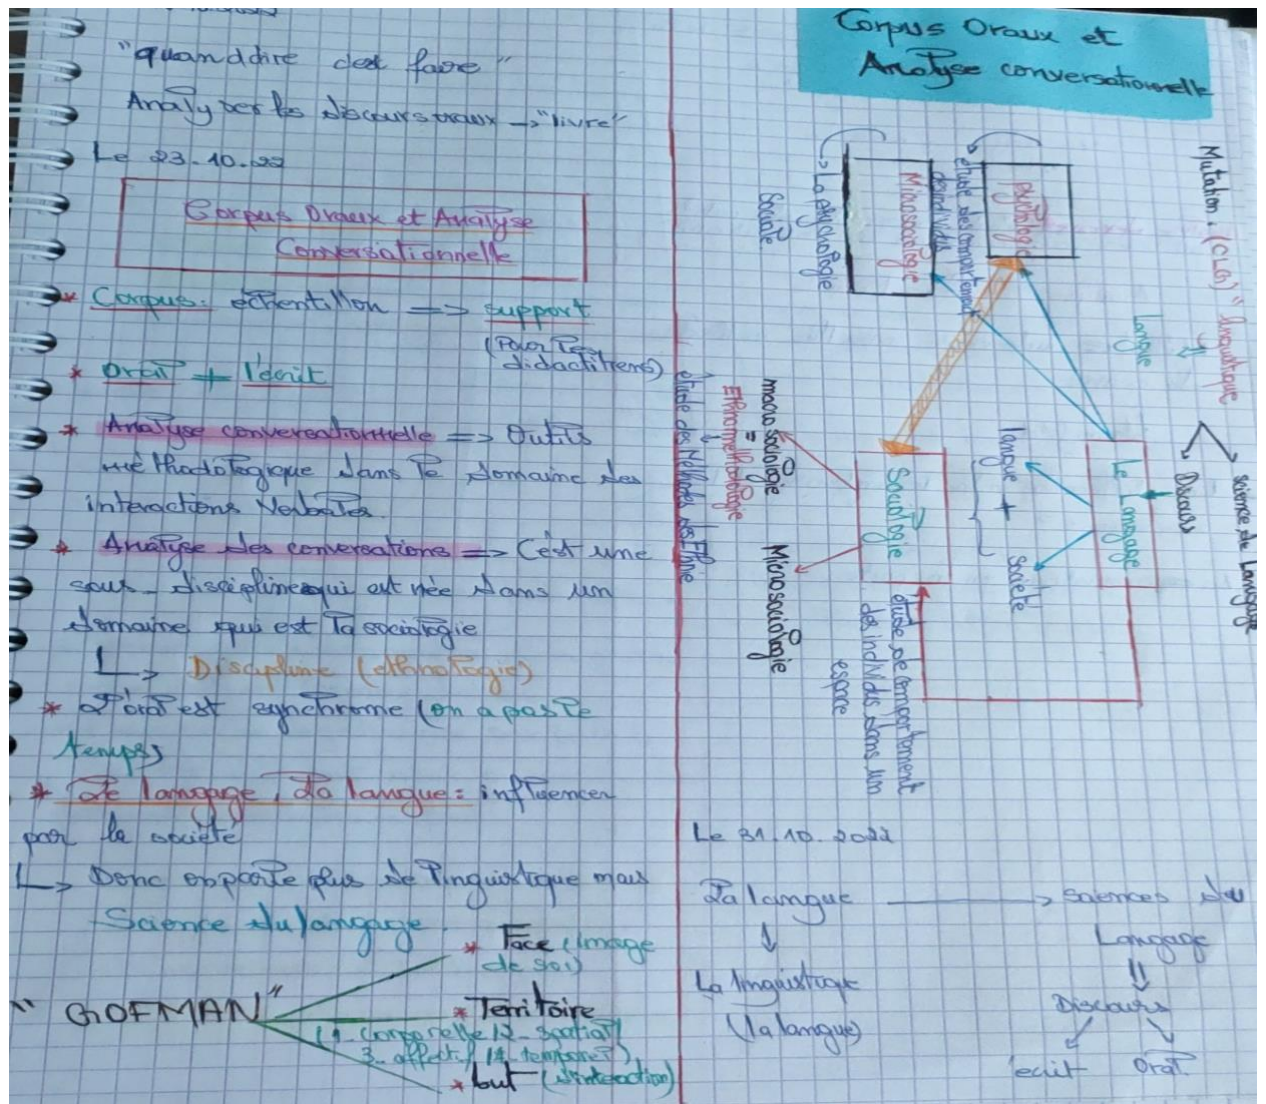 "quand dire c'est faire"
Analyser les discours oraux → "livre"
Le 23.10.22
Corpus Oraux et Analyse
Conversationnelle
* Corpus: echentillon => support
(Pour les
didacticiens)
* Oral + l'écrit
* Analyse conversationnelle => Outils
méthodologique dans le domaine des
interactions Verbales.
* Analyse des conversations => C'est une
sous-discipline qui est née dans un
domaine qui est la sociologie
↳ Discipline (ethnologie)
* L'oral est synchrome (on a pas le
temps)
* Le langage, la langue: influencer
par la société
↳ Donc on parle plus de linguistique mais
Science du langage.
"GOFMAN"
* Face (image
de soi)
* Territoire
(1- Corporelle / 2- spatial /
3- affectif / 4- temporel)
* but (d'interaction)
Corpus Oraux et
Analyse conversationnelle
Mutation. (CLG) "linguistique
science du Langage
Langue
Discours
Le Langage
langue + Société
psychologie
étude des comportement
des individus
Microsociologie
La psychologie
Sociale
Sociologie
étude de comportement
des individus dans un
espace
macro sociologie
=
Microsociologie
étude des Méthodes des Ethnie
Le 31.10.2022
La langue → Sciences du
Langage
↓
La linguistique
(la langue)
Discours
écrit
Oral.